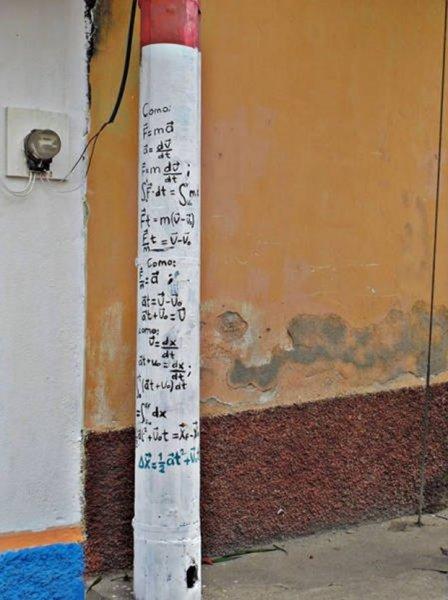 Como:
F⃗=ma⃗
a⃗=dv⃗/dt
F⃗=m dv⃗/dt;
∫F⃗·dt=∫m
F⃗t=m(v⃗-u⃗)
F⃗/m t=v⃗-v⃗₀
Como:
F⃗/m=a⃗;
a⃗t=v⃗-v⃗₀
a⃗t+v⃗₀=v⃗
Como:
v⃗=dx⃗/dt
a⃗t+v₀=dx⃗/dt;
∫(a⃗t+v₀)dt
=∫dx
t²+v⃗₀t=x⃗f-x⃗
Δx⃗=½a⃗t²+v⃗